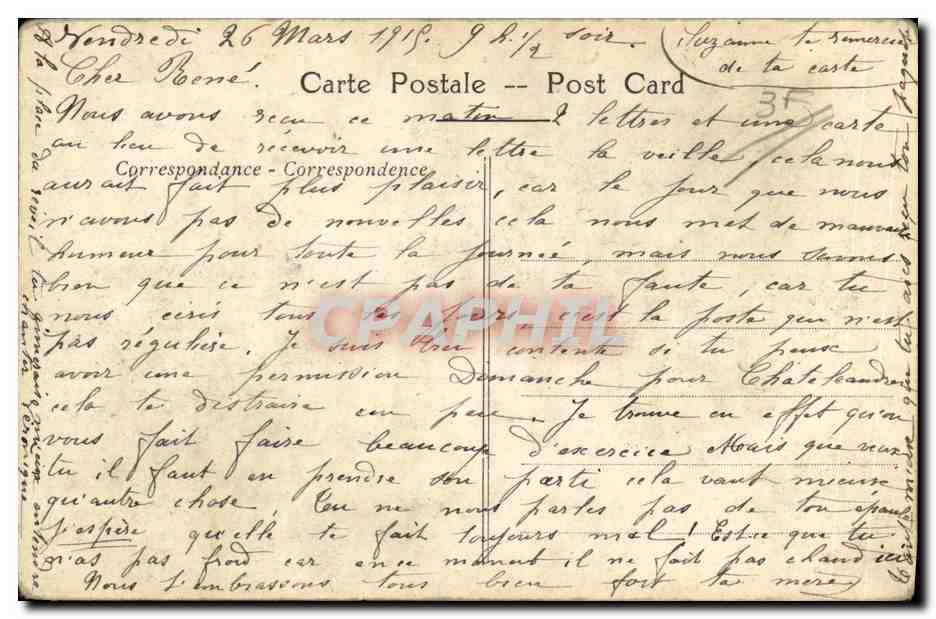 Vendredi 26 Mars 1915. 9 h. 1/2 soir.
Suzanne te remercie
de ta carte
Cher René.
Carte Postale -- Post Card
3F
Nous avons reçu ce matin 2 lettres et une carte
au lieu de recevoir une lettre la veille, cela nous
Correspondance - Correspondence
aurait fait plus plaisir, car le jour que nous
n'avons pas de nouvelles cela nous met de mauvaise
humeur pour toute la journée, mais nous savons
bien que ce n'est pas de ta faute, car tu
nous écris tous les jours, c'est la poste qui n'est
CPAPHIL
pas régulière. Je suis très contente si tu peux
avoir une permission Dimanche pour Chatelaudren
cela te distraira un peu. Je trouve en effet qu'on
vous fait faire beaucoup d'exercice Mais que veux
tu il faut en prendre son parti cela vaut mieux
qu'autre chose. Tu ne nous parles pas de ton épaule
j'espère qu'elle te fait toujours mal! Est-ce que tu
n'as pas froid car en ce moment il ne fait pas chaud ici
Nous t'embrassons tous bien fort ta mère
A la place du réveil tu aimerais mieux entendre
chanter
que tu as reçu ton paquet